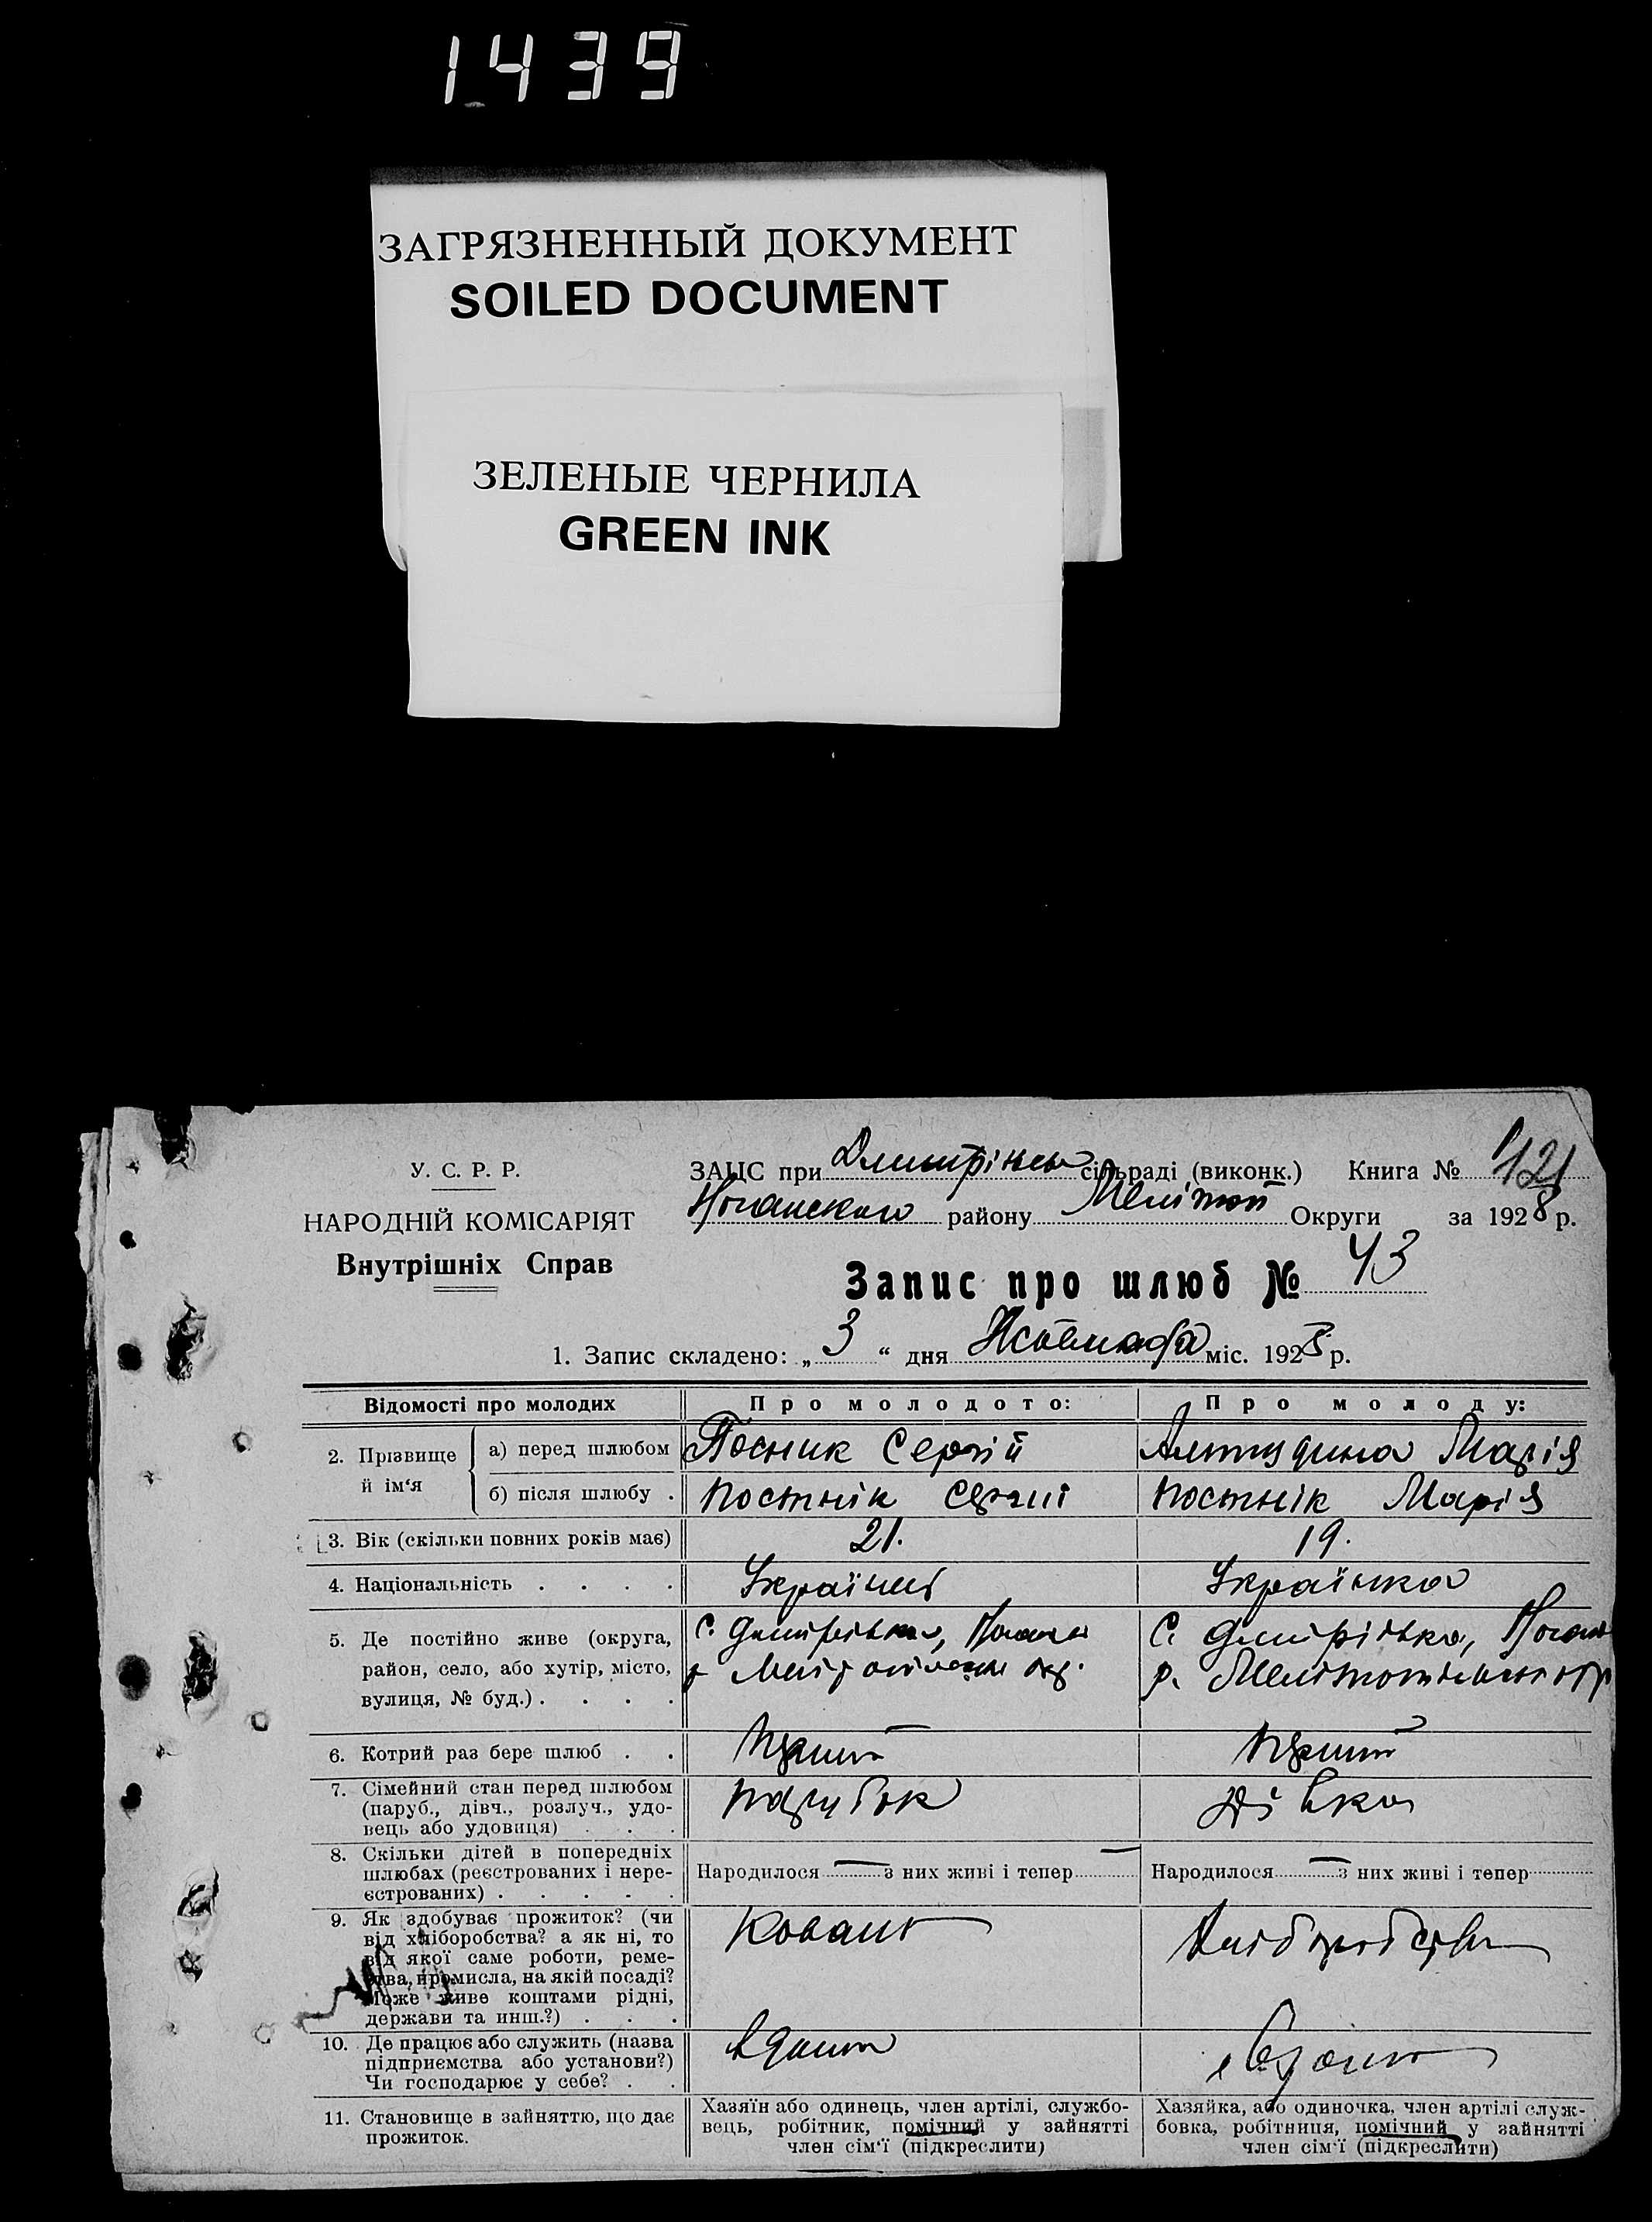 1439
ЗАГРЯЗНЕННЫЙ ДОКУМЕНТ
SOILED DOCUMENT
ЗЕЛЕНЫЕ ЧЕРНИЛА
GREEN INK
У. С. Р. Р.
НАРОДНІЙ КОМІСАРІЯТ
Внутрішніх Справ
ЗАЦС при сільраді (виконк.) Книга №
району Округи за 1928 р.
Запис про шлюб № 43
1. Запис складено: „ 3 “ дня міс. 1928 р.
Відомості про молодих
Про молодого:
Про молоду:
2. Прізвище й ім‘я
а) перед шлюбом
Посник Сергій
Марія
б) після шлюбу .
Постнік Сергій
Постнік Марія
3. Вік (скільки повних років має)
21.
19.
4. Національність . . . .
Українець
Українка
5. Де постійно живе (округа,
район, село, або хутір, місто,
вулиця, № буд.) . . . .
с. Дмитрівка,
С. Дмитрівка,
р.
6. Котрий раз бере шлюб . .
Перший
Перший
7. Сімейний стан перед шлюбом
(паруб., дівч., розлуч., удо-
вець або удовиця) . . .
парубок
дівка
8. Скільки дітей в попередніх
шлюбах (реєстрованих і нере-
єстрованих) . . . . .
Народилося — з них живі і тепер —
Народилося — з них живі і тепер
9. Як здобуває прожиток? (чи
від хліборобства? а як ні, то
від якої саме роботи, реме-
ства, промисла, на якій посаді?
Може живе коштами рідні,
держави та инш.?) . . .
10. Де працює або служить (назва
підприємства або установи?)
Чи господарює у себе? . .
11. Становище в зайняттю, що дає
прожиток.
Хазяїн або одинець, член артілі, службо-
вець, робітник, помічний у зайнятті
член сім‘ї (підкреслити)
Хазяйка, або одиночка, член артілі служ-
бовка, робітниця, помічний у зайнятті
член сім‘ї (підкреслити)